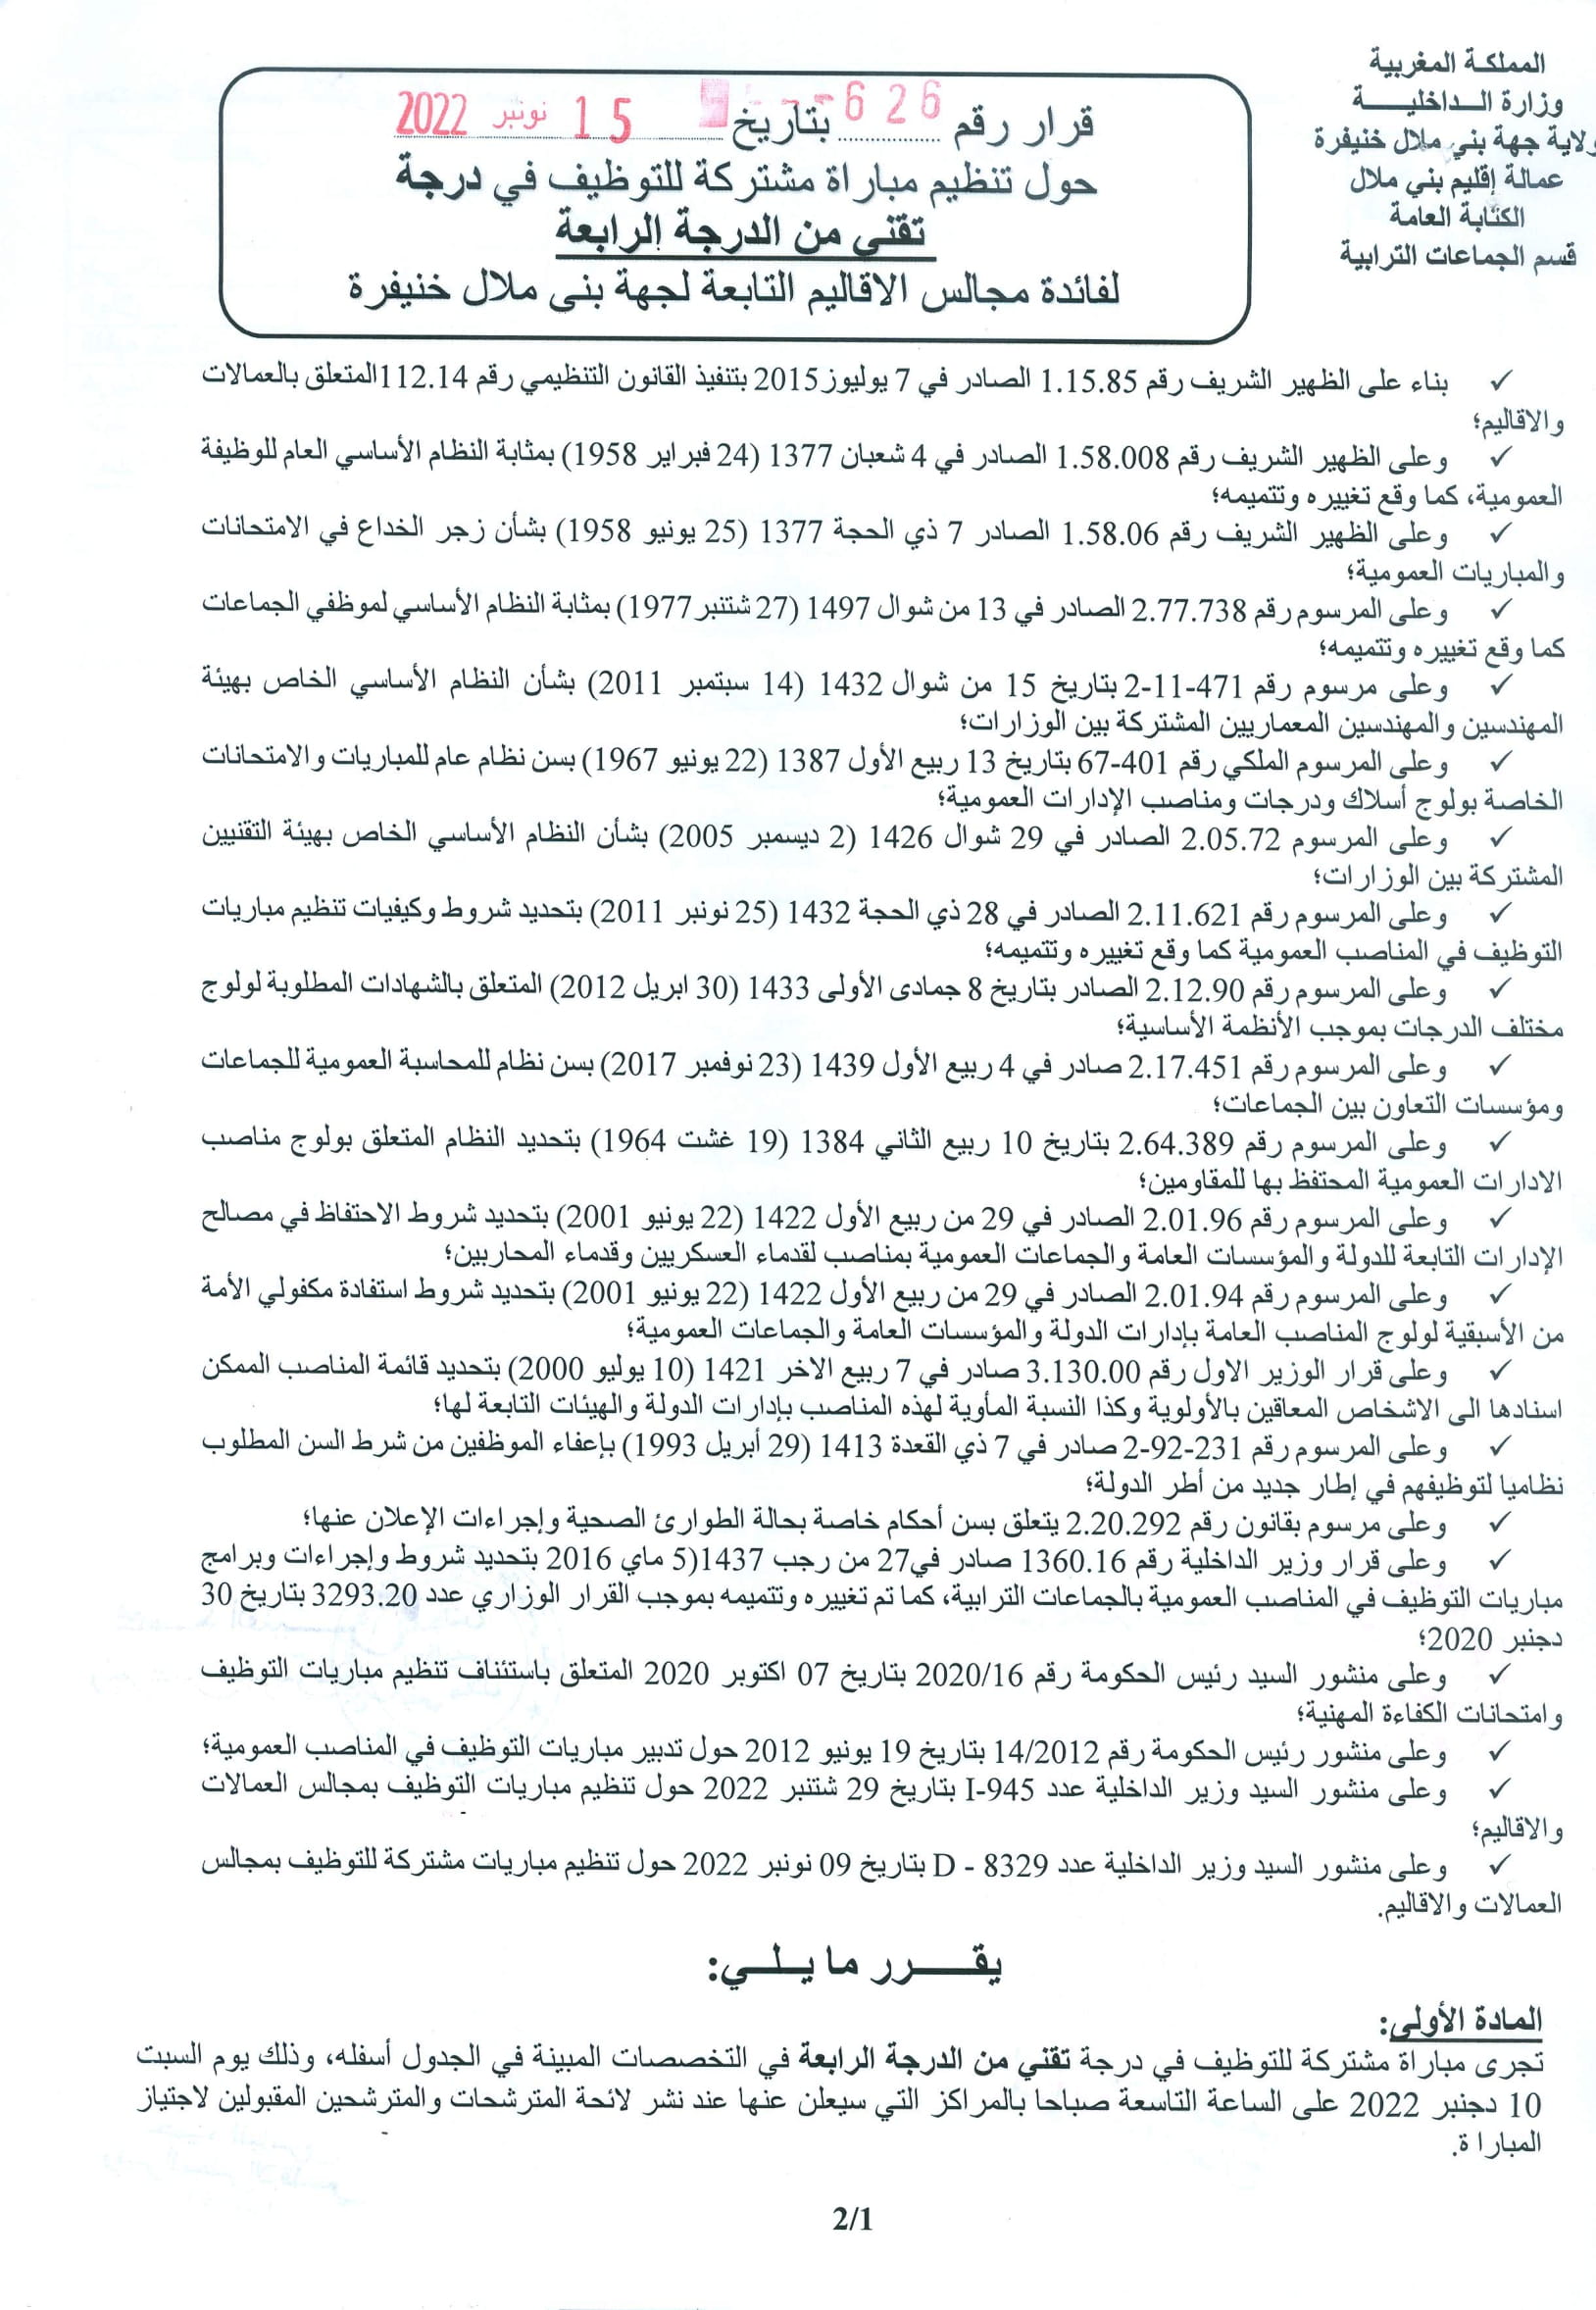 المملكة المغربية
وزارة الـداخليـــة
ولاية جهة بني ملال خنيفرة
عمالة إقليم بني ملال
الكتابة العامة
قسم الجماعات الترابية
قرار رقم 626 بتاريخ 15 نونبر 2022
حول تنظيم مباراة مشتركة للتوظيف في درجة
تقني من الدرجة الرابعة
لفائدة مجالس الاقاليم التابعة لجهة بني ملال خنيفرة
✓ بناء على الظهير الشريف رقم 1.15.85 الصادر في 7 يوليوز2015 بتنفيذ القانون التنظيمي رقم 112.14المتعلق بالعمالات
والاقاليم؛
✓ وعلى الظهير الشريف رقم 1.58.008 الصادر في 4 شعبان 1377 (24 فبراير 1958) بمثابة النظام الأساسي العام للوظيفة
العمومية، كما وقع تغييره وتتميمه؛
✓ وعلى الظهير الشريف رقم 1.58.06 الصادر 7 ذي الحجة 1377 (25 يونيو 1958) بشأن زجر الخداع في الامتحانات
والمباريات العمومية؛
✓ وعلى المرسوم رقم 2.77.738 الصادر في 13 من شوال 1497 (27 شتنبر1977) بمثابة النظام الأساسي لموظفي الجماعات
كما وقع تغييره وتتميمه؛
✓ وعلى مرسوم رقم 471-11-2 بتاريخ 15 من شوال 1432 (14 سبتمبر 2011) بشأن النظام الأساسي الخاص بهيئة
المهندسين والمهندسين المعماريين المشتركة بين الوزارات؛
✓ وعلى المرسوم الملكي رقم 401-67 بتاريخ 13 ربيع الأول 1387 (22 يونيو 1967) بسن نظام عام للمباريات والامتحانات
الخاصة بولوج أسلاك ودرجات ومناصب الإدارات العمومية؛
✓ وعلى المرسوم 2.05.72 الصادر في 29 شوال 1426 (2 ديسمبر 2005) بشأن النظام الأساسي الخاص بهيئة التقنيين
المشتركة بين الوزارات؛
✓ وعلى المرسوم رقم 2.11.621 الصادر في 28 ذي الحجة 1432 (25 نونبر 2011) بتحديد شروط وكيفيات تنظيم مباريات
التوظيف في المناصب العمومية كما وقع تغييره وتتميمه؛
✓ وعلى المرسوم رقم 2.12.90 الصادر بتاريخ 8 جمادى الأولى 1433 (30 ابريل 2012) المتعلق بالشهادات المطلوبة لولوج
مختلف الدرجات بموجب الأنظمة الأساسية؛
✓ وعلى المرسوم رقم 2.17.451 صادر في 4 ربيع الأول 1439 (23 نوفمبر 2017) بسن نظام للمحاسبة العمومية للجماعات
ومؤسسات التعاون بين الجماعات؛
✓ وعلى المرسوم رقم 2.64.389 بتاريخ 10 ربيع الثاني 1384 (19 غشت 1964) بتحديد النظام المتعلق بولوج مناصب
الادارات العمومية المحتفظ بها للمقاومين؛
✓ وعلى المرسوم رقم 2.01.96 الصادر في 29 من ربيع الأول 1422 (22 يونيو 2001) بتحديد شروط الاحتفاظ في مصالح
الإدارات التابعة للدولة والمؤسسات العامة والجماعات العمومية بمناصب لقدماء العسكريين وقدماء المحاربين؛
✓ وعلى المرسوم رقم 2.01.94 الصادر في 29 من ربيع الأول 1422 (22 يونيو 2001) بتحديد شروط استفادة مكفولي الأمة
من الأسبقية لولوج المناصب العامة بإدارات الدولة والمؤسسات العامة والجماعات العمومية؛
✓ وعلى قرار الوزير الاول رقم 3.130.00 صادر في 7 ربيع الاخر 1421 (10 يوليو 2000) بتحديد قائمة المناصب الممكن
اسنادها الى الاشخاص المعاقين بالأولوية وكذا النسبة المأوية لهذه المناصب بإدارات الدولة والهيئات التابعة لها؛
✓ وعلى المرسوم رقم 231-92-2 صادر في 7 ذي القعدة 1413 (29 أبريل 1993) بإعفاء الموظفين من شرط السن المطلوب
نظاميا لتوظيفهم في إطار جديد من أطر الدولة؛
✓ وعلى مرسوم بقانون رقم 2.20.292 يتعلق بسن أحكام خاصة بحالة الطوارئ الصحية وإجراءات الإعلان عنها؛
✓ وعلى قرار وزير الداخلية رقم 1360.16 صادر في27 من رجب 1437(5 ماي 2016 بتحديد شروط وإجراءات وبرامج
مباريات التوظيف في المناصب العمومية بالجماعات الترابية، كما تم تغييره وتتميمه بموجب القرار الوزاري عدد 3293.20 بتاريخ 30
دجنبر 2020؛
✓ وعلى منشور السيد رئيس الحكومة رقم 2020/16 بتاريخ 07 اكتوبر 2020 المتعلق باستئناف تنظيم مباريات التوظيف
وامتحانات الكفاءة المهنية؛
✓ وعلى منشور رئيس الحكومة رقم 14/2012 بتاريخ 19 يونيو 2012 حول تدبير مباريات التوظيف في المناصب العمومية؛
✓ وعلى منشور السيد وزير الداخلية عدد I-945 بتاريخ 29 شتنبر 2022 حول تنظيم مباريات التوظيف بمجالس العمالات
والاقاليم؛
✓ وعلى منشور السيد وزير الداخلية عدد D - 8329 بتاريخ 09 نونبر 2022 حول تنظيم مباريات مشتركة للتوظيف بمجالس
العمالات والاقاليم.
يقـــرر ما يـلـي:
المادة الأولى:
تجرى مباراة مشتركة للتوظيف في درجة تقني من الدرجة الرابعة في التخصصات المبينة في الجدول أسفله، وذلك يوم السبت
10 دجنبر 2022 على الساعة التاسعة صباحا بالمراكز التي سيعلن عنها عند نشر لائحة المترشحات والمترشحين المقبولين لاجتياز
المباراة.
2/1